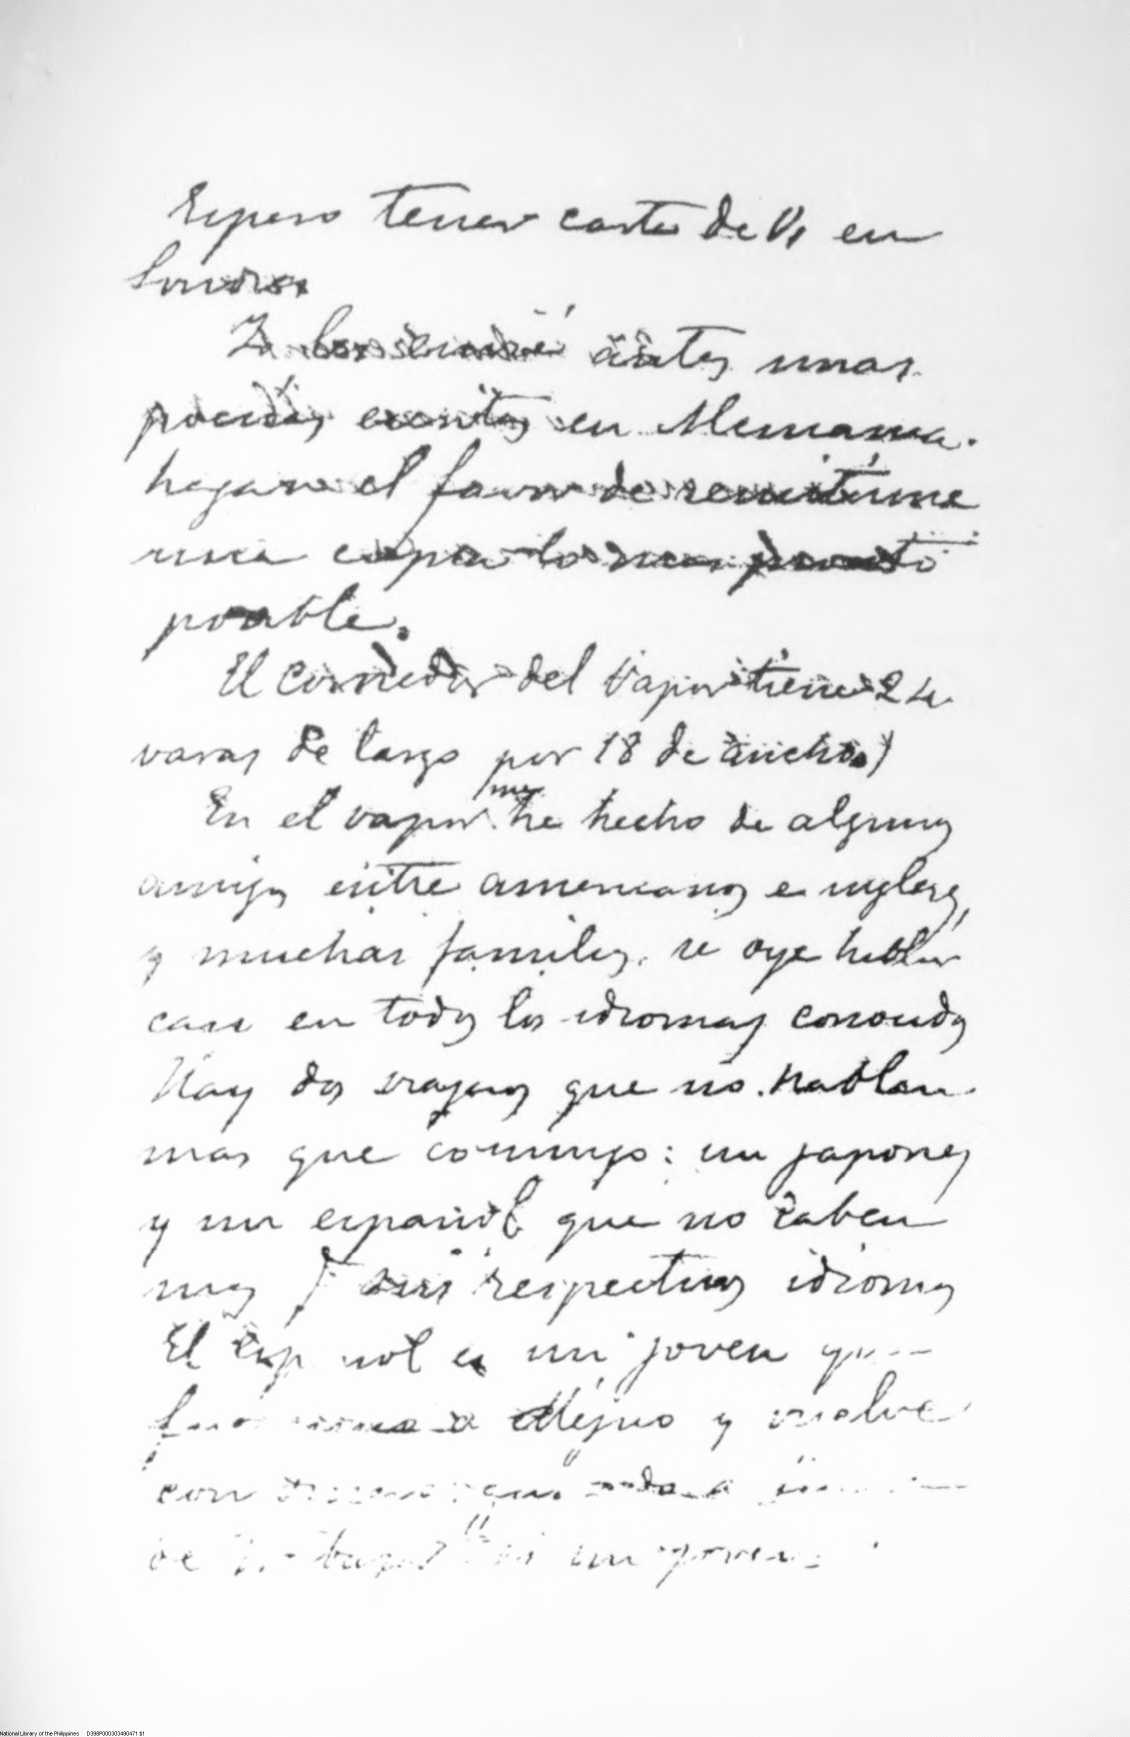 Espero tener carta de V. en
Londres
Ya les envié antes unas
poesías escritas en Alemania.
hagame el favor de remitirme
una copia lo mas pronto
posible.
El corredor del Vapor tiene 24
varas de largo por 18 de ancho)
En el vapor me he hecho de algunos
amigos entre americanos e ingleses,
y muchas familias. se oye hablar
casi en todos los idiomas conocidos
Hay dos viajeros que no hablan
mas que conmigo: un japones
y un español que no saben
mas q sus respectivos idiomas
El español es un joven que
fue a Mejico y vuelve
con
de un joven
National Library of the Philippines D398P000303490471 $1